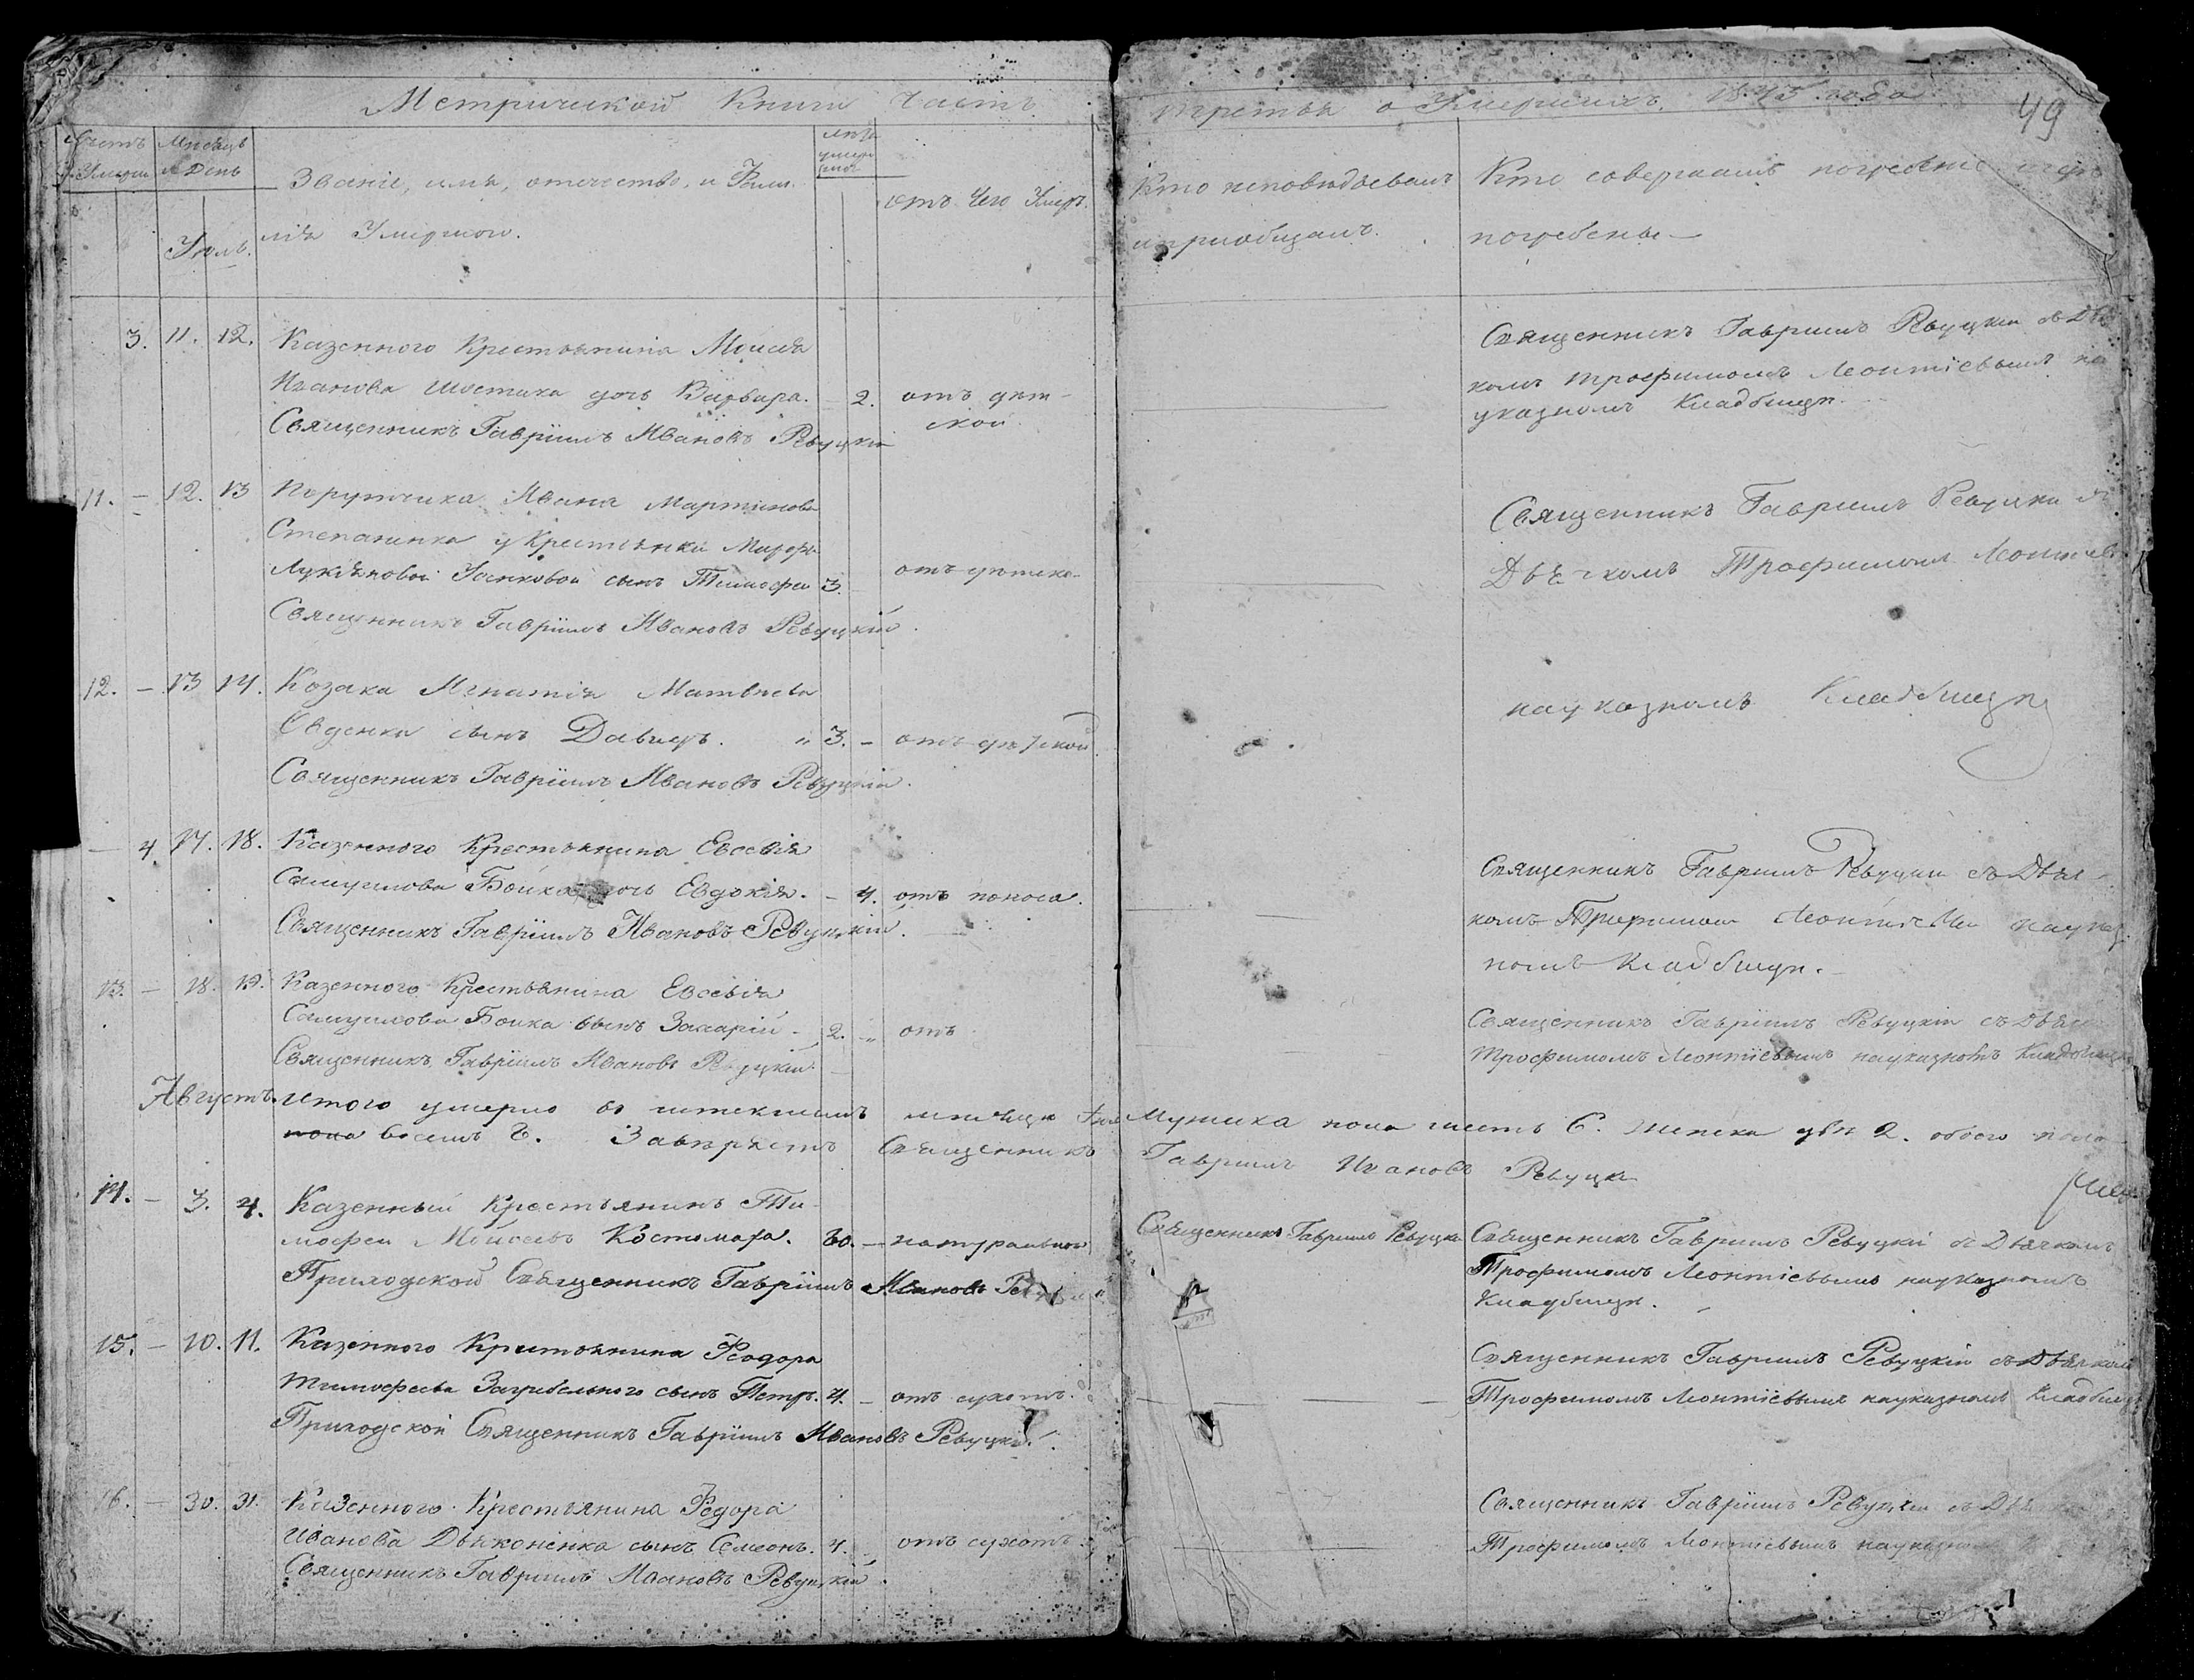 Метрической Книги Часть
третья о Умершихъ. 1845 года
49
Счетъ Умерш.
Месяцъ и День
Званіе, имя, отечество, и Фами-
лія Умершого.
лета умер
отъ Чего Умеръ.
Кто исповедывалъ
и приобщалъ.
Кто совершалъ погребеніе и где
погребены —
Июль.
3. 11. 12. Казенного Крестьянина Моисея
Иванова Шостака дочь Варвара. — 2. отъ дет-
ской
Священникъ Гавріилъ Ивановъ Ревуцкій
Священникъ Гавриилъ Ревуцкій съ Дья
комъ Трофимомъ Леонтіевымъ на
указномъ Кладбищѣ.
11. — 12. 13 Порутчика Ивана Мартинова
Степаненка у Крестьянки Марфы
Лукьяновой сынъ Тимофей 3. отъ детско-
Священникъ Гавріилъ Ивановъ Ревуцкій.
Священникъ Гавриилъ Ревуцкій съ
Дьячкомъ Трофимомъ Леонтіев
на указномъ Кладбищѣ
12. — 13 14. Козака Игнатія Матвѣева
Евденка сынъ Давидъ. " 3. — отъ дѣтской
Священникъ Гавріилъ Ивановъ Ревуцкій.
— 4. 17. 18. Казенного Крестьянина Евсевія
Самуилова Бойка дочь Евдокія. — 4. отъ поноса.
Священникъ Гавріилъ Ивановъ Ревуцкій.
Священникъ Гавриилъ Ревуцкій съ Дьяч-
комъ Трофимомъ Леонтіевы на указ-
номъ Кладбищѣ.
13. — 18. 19. Казенного Крестьянина Евсевія
Самуилова Бойка сынъ Захарій. 2. " отъ
Священникъ Гавріилъ Ивановъ Ревуцкій.
Священникъ Гавріилъ Ревуцкій съ Дьяч
Трофимомъ Леонтіевымъ на указномъ Кладбищѣ
Августъ. Итого умерло въ истекшемъ месяце Июл Мужска пола шесть 6. Женска две 2. обоего пола
пола восемь 8. Заверяетъ Священникъ Гавриилъ Ивановъ Ревуцкій
14. — 3. 4. Казенный Крестьянинъ Ти-
мофей Моисеевъ Костомаха. 60. — натуральною
Приходской Священникъ Гавріилъ Ивановъ
Священникъ Гавриилъ Ревуцкій
Священникъ Гавріилъ Ревуцкій съ Дьячкомъ
Трофимомъ Леонтіевымъ на указномъ
Кладбищѣ.
15. — 10. 11. Казенного Крестьянина Феодора
Тимофеева Загребельного сынъ Петръ. 4. — отъ сухотъ.
Приходской Священникъ Гавріилъ Ивановъ Ревуцкій.
Священникъ Гавриилъ Ревуцкій съ Дьячком
Трофимомъ Леонтіевымъ на указномъ Кладбищѣ
16. — 30. 31. Казенного Крестьянина Федора
Иванова Дьяконенка сынъ Семеонъ. 4. отъ сухотъ.
Священникъ Гавріилъ Ивановъ Ревуцкій.
Священникъ Гавріилъ Ревуцкій съ Дья
Трофимомъ Леонтіевымъ на указном